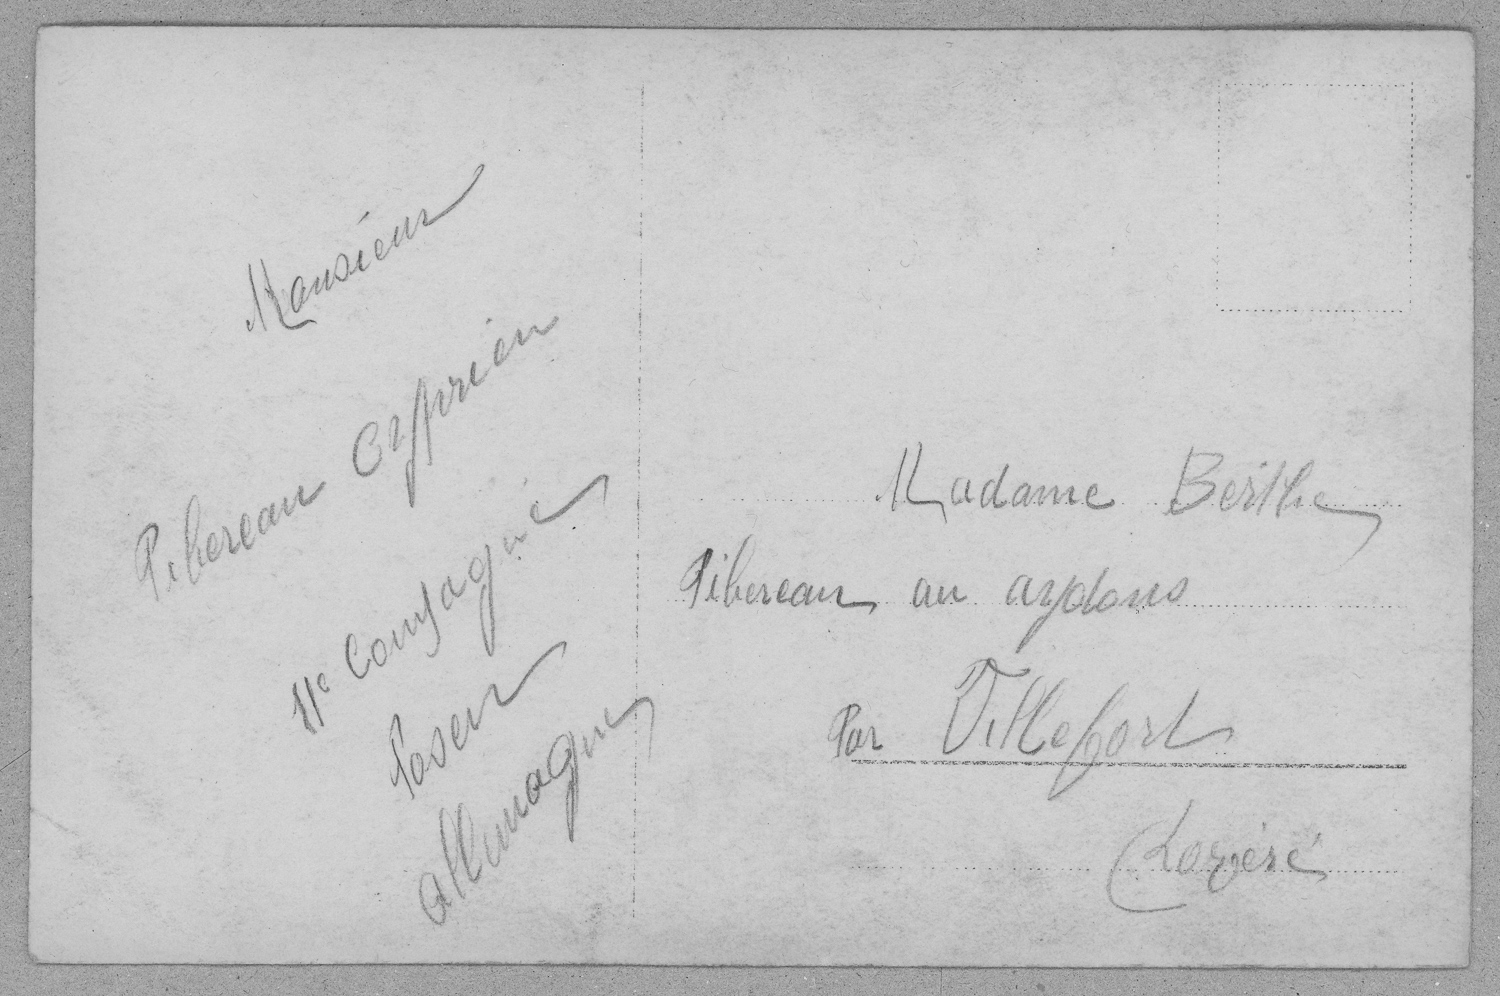 Monsieur
Pibereau Cyprien
11e Compagnie
Posen
allemagne
Madame Berthe
Pibereau au aydons
Par Villefort
Lozéré